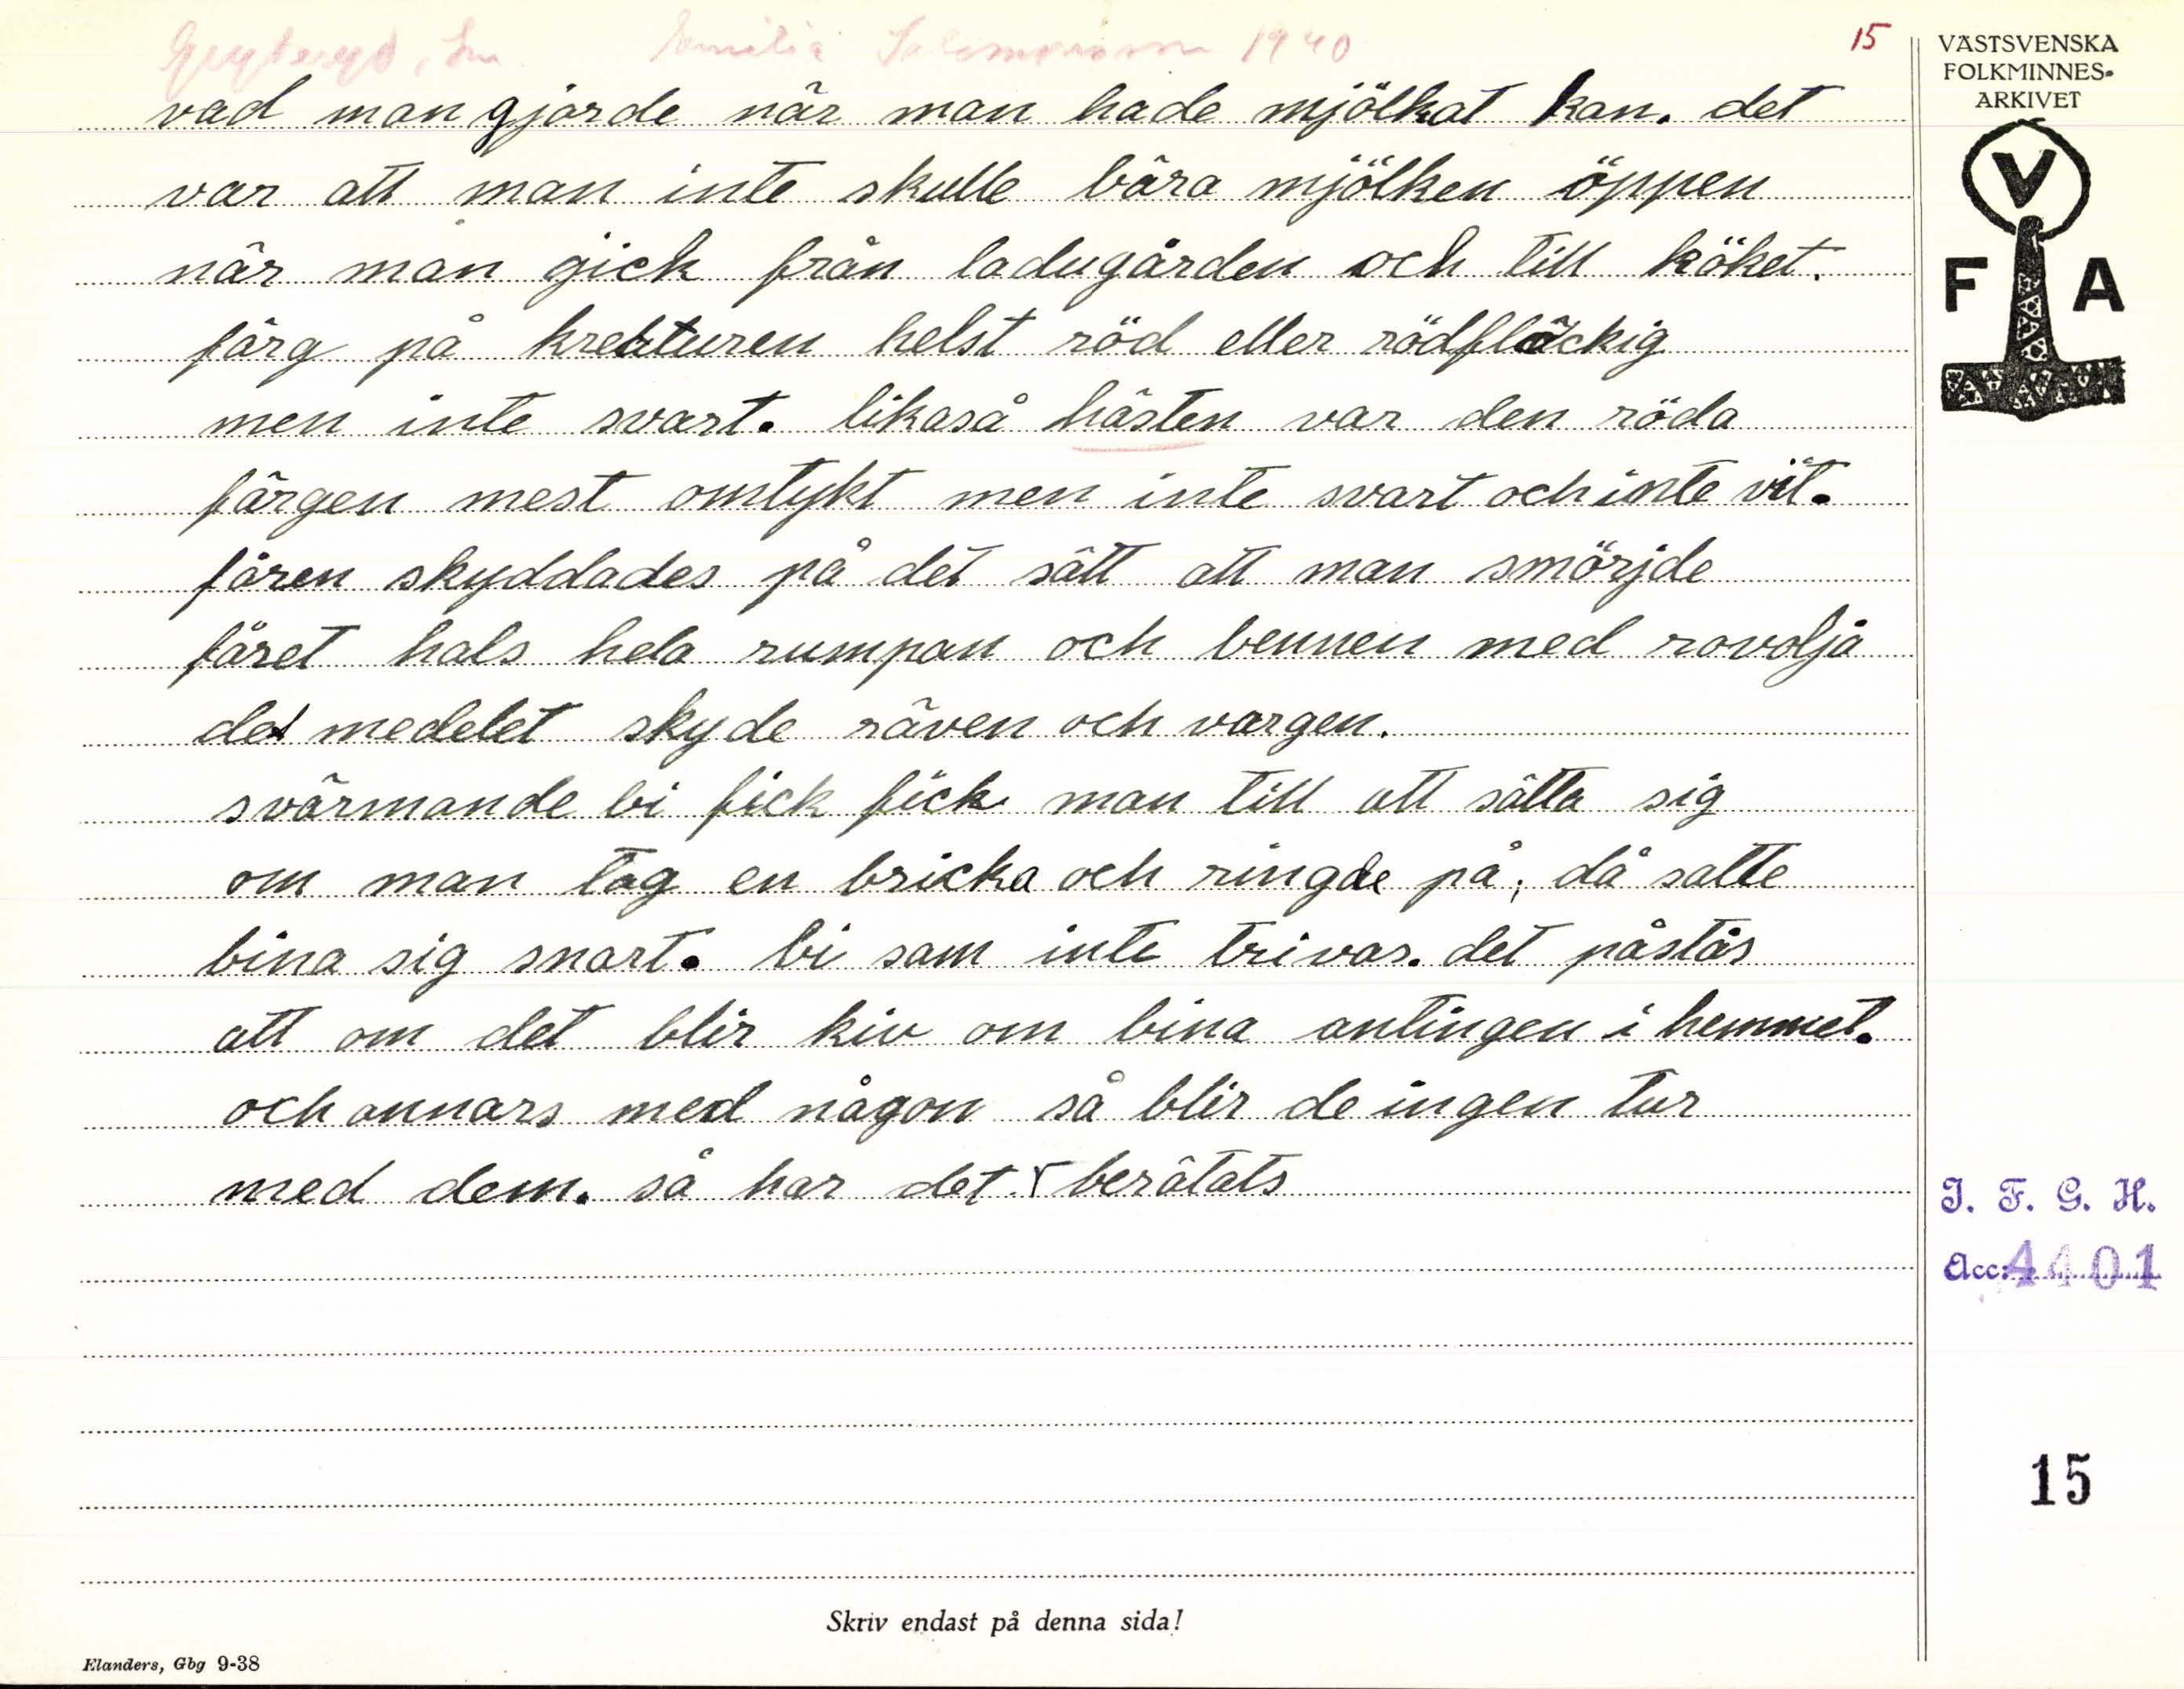 Emilia 1940
15
vad man gjorde när man hade mjölkat kan. det
var att man inte skulle bära mjölken öppen
när man gick från ladugården och till köket.
färg på kreaturen helst röd eller rödfläckig
men inte svart. likaså hästen var den röda
färgen mest omtykt men inte svart och inte vit.
fåren skyddades på det sätt att man smörjde
fåret hals hela rumpan och bennen med rovolja
det medelet skyde räven och vargen.
svärmande bi fick fick man till att sätta sig
om man tog en bricka och ringde på, då satte
bina sig snart. bi som inte trivas. det påstås
att om det blir kiv om bina antingen i hemmet.
och annars med någon så blir de ingen tur
med dem. så har det berätats
VÄSTSVENSKA
FOLKMINNES-
ARKIVET
V
F A
I. F. G. H.
Acc: 4401
15
Skriv endast på denna sida!
Elanders, Gbg 9-38